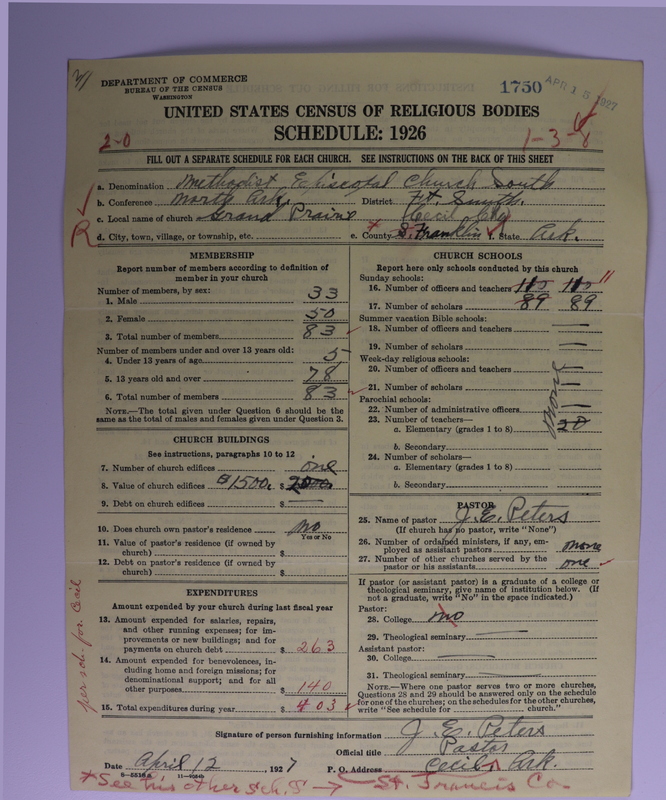 DEPARTMENT OF COMMERCE
BUREAU OF THE CENSUS
WASHINGTON
1750 APR 15 1927
UNITED STATES CENSUS OF RELIGIOUS BODIES
SCHEDULE: 1926
2-0
1-3-8
FILL OUT A SEPARATE SCHEDULE FOR EACH CHURCH. SEE INSTRUCTIONS ON THE BACK OF THIS SHEET
a. Denomination Methodist Episcopal Church South
b. Conference North Ark. District Ft. Smith.
c. Local name of church Grand Prairie Cecil
d. City, town, village, or township, etc. e. County S. Franklin f. State Ark.
R
MEMBERSHIP
Report number of members according to definition of member in your church
Number of members, by sex:
1. Male 33
2. Female 50
3. Total number of members 83
Number of members under and over 13 years old:
4. Under 13 years of age 5
5. 13 years old and over 78
6. Total number of members 83
NOTE.—The total given under Question 6 should be the same as the total of males and females given under Question 3.
CHURCH BUILDINGS
See instructions, paragraphs 10 to 12
7. Number of church edifices one
8. Value of church edifices $1500. $ 2000
9. Debt on church edifices $
10. Does church own pastor's residence No
Yes or No
11. Value of pastor's residence (if owned by church) $
12. Debt on pastor's residence (if owned by church) $
EXPENDITURES
Amount expended by your church during last fiscal year
13. Amount expended for salaries, repairs, and other running expenses; for improvements or new buildings; and for payments on church debt $ 263
14. Amount expended for benevolences, including home and foreign missions; for denominational support; and for all other purposes $ 140
15. Total expenditures during year $ 403
per sch. for Cecil
CHURCH SCHOOLS
Report here only schools conducted by this church
Sunday schools:
16. Number of officers and teachers 11
17. Number of scholars 89 89
Summer vacation Bible schools:
18. Number of officers and teachers
19. Number of scholars
Week-day religious schools:
20. Number of officers and teachers
21. Number of scholars
none
Parochial schools:
22. Number of administrative officers
23. Number of teachers—
a. Elementary (grades 1 to 8) 20
b. Secondary
24. Number of scholars—
a. Elementary (grades 1 to 8)
b. Secondary
PASTOR
25. Name of pastor J. E. Peters
(If church has no pastor, write "None")
26. Number of ordained ministers, if any, employed as assistant pastors none
27. Number of other churches served by the pastor or his assistants one
If pastor (or assistant pastor) is a graduate of a college or theological seminary, give name of institution below. (If not a graduate, write "No" in the space indicated.)
Pastor:
28. College no
29. Theological seminary
Assistant pastor:
30. College
31. Theological seminary
NOTE.—Where one pastor serves two or more churches, Questions 28 and 29 should be answered only on the schedule for one of the churches; on the schedules for the other churches, write "See schedule for ........ church."
Signature of person furnishing information J. E. Peters
Official title Pastor
Date April 12, 1927 P. O. Address Cecil, Ark.
*See his other sch. → St. Francis Co.